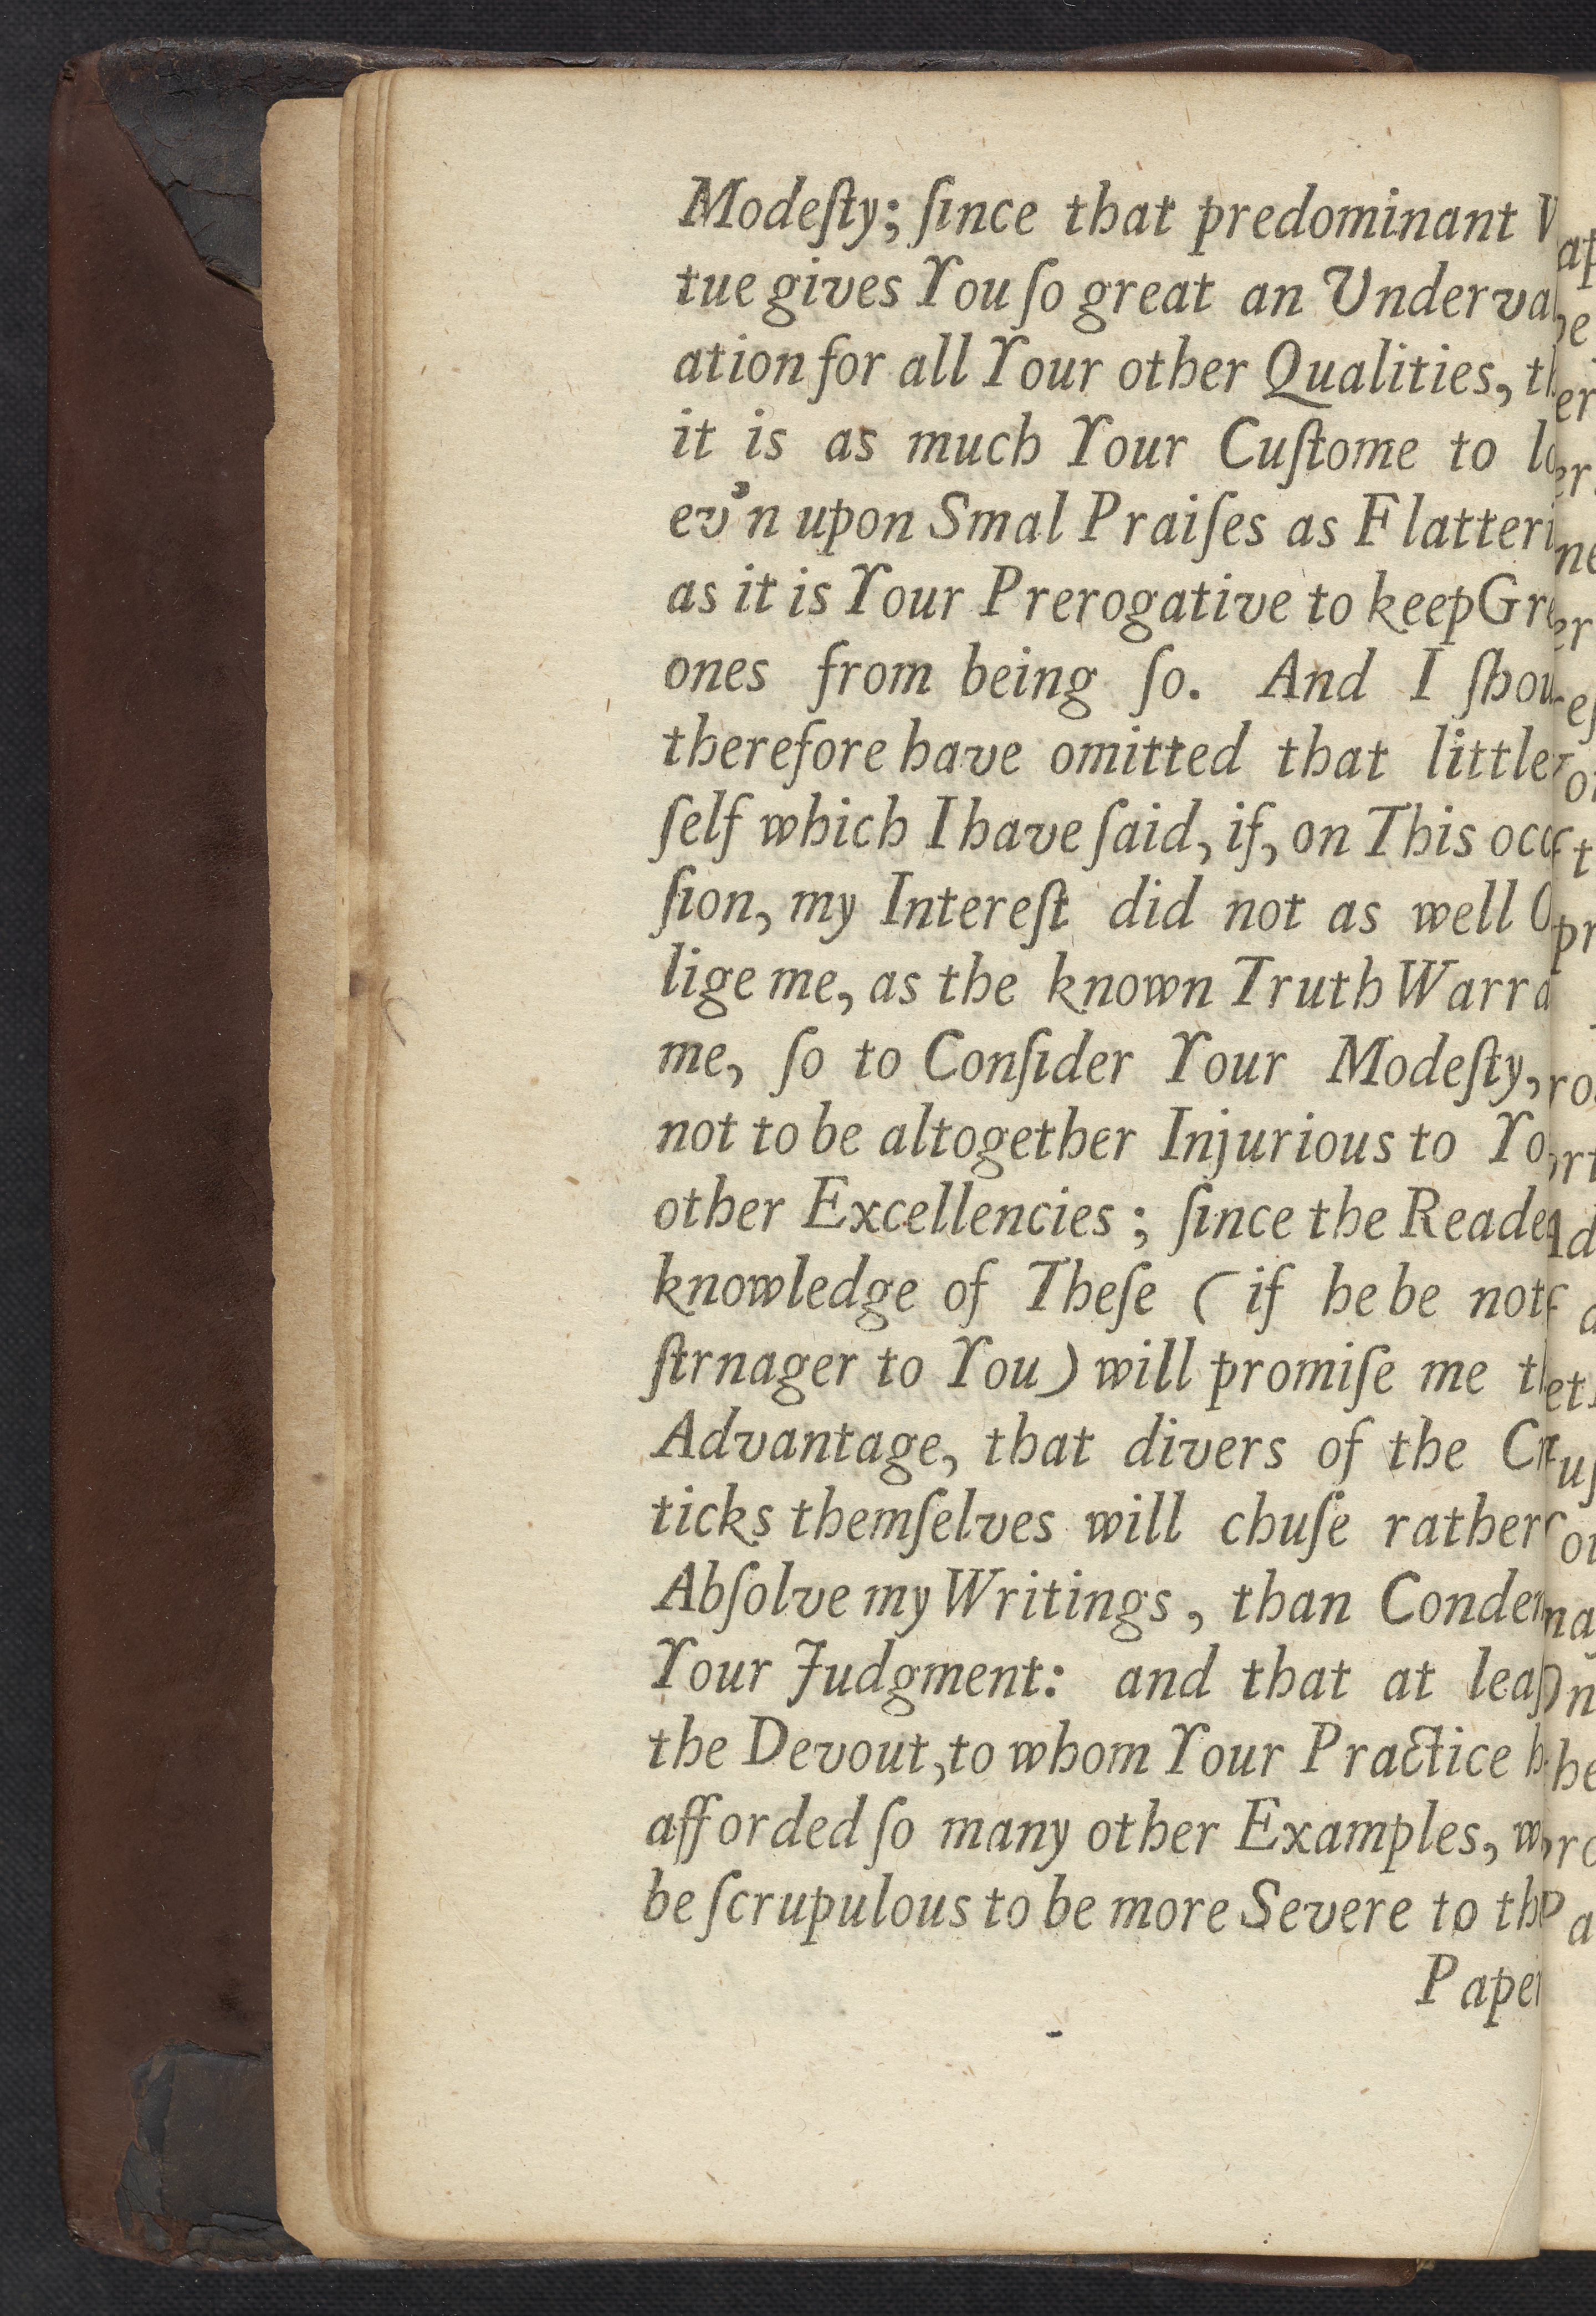 Modeſty; ſince that predominant V
tue gives You ſo great an Underva
ation for all Your other Qualities, th
it is as much Your Cuſtome to lo
ev'n upon Smal Praiſes as Flatteri
as it is Your Prerogative to keep Gre
ones from being ſo. And I ſhou
therefore have omitted that little
ſelf which I have ſaid, if, on This occa
ſion, my Intereſt did not as well O
lige me, as the known Truth Warra
me, ſo to Conſider Your Modeſty,
not to be altogether Injurious to Yo
other Excellencies; ſince the Reade
knowledge of Theſe (if he be not
ſtrnager to You) will promiſe me th
Advantage, that divers of the Cri
ticks themſelves will chuſe rather
Abſolve my Writings, than Condem
Your Judgment: and that at leaſ
the Devout, to whom Your Practice h
afforded ſo many other Examples, w
be ſcrupulous to be more Severe to the
Paper